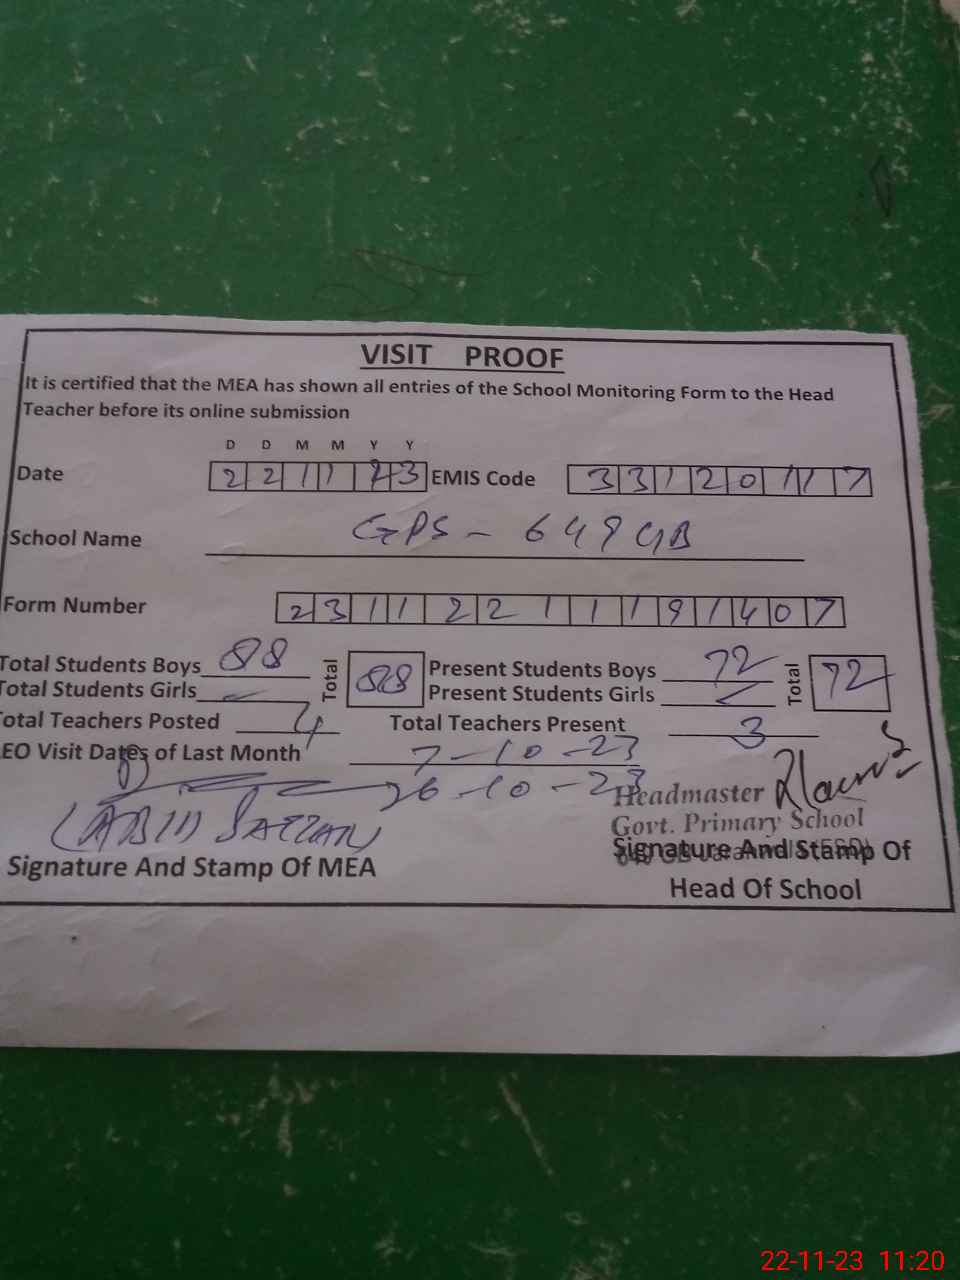 VISIT PROOF
It is certified that the MEA has shown all entries of the School Monitoring Form to the Head
Teacher before its online submission
D D M M Y Y
Date 2 2 1 1 2 3 EMIS Code 3 3 1 2 0 1 1 7
School Name GPS - 649 GB
Form Number 2 3 1 1 2 2 1 1 1 9 1 4 0 7
Total Students Boys 88 Total 88 Present Students Boys 72 Total 72
Total Students Girls - Present Students Girls -
Total Teachers Posted 4 Total Teachers Present 3
EO Visit Dates of Last Month 7-10-23
26-10-23
Headmaster
Govt. Primary School
Signature And Stamp Of MEA
Signature And Stamp Of
Head Of School
22-11-23 11:20